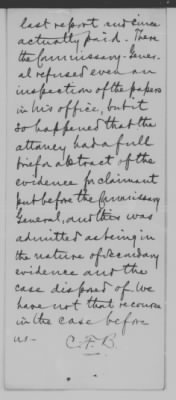 last report and since
actually paid. There
the Commissary-Gener-
al refused even an
inspection of the papers
in his office, but it
so happened that the
attorney had a full
brief or abstract of the
evidence for claimant
put before the Commissary
General, and this was
admitted as being in
the nature of secondary
evidence and the
case disposed of. We
have not that recourse
in the case before
us—
C.F.B.